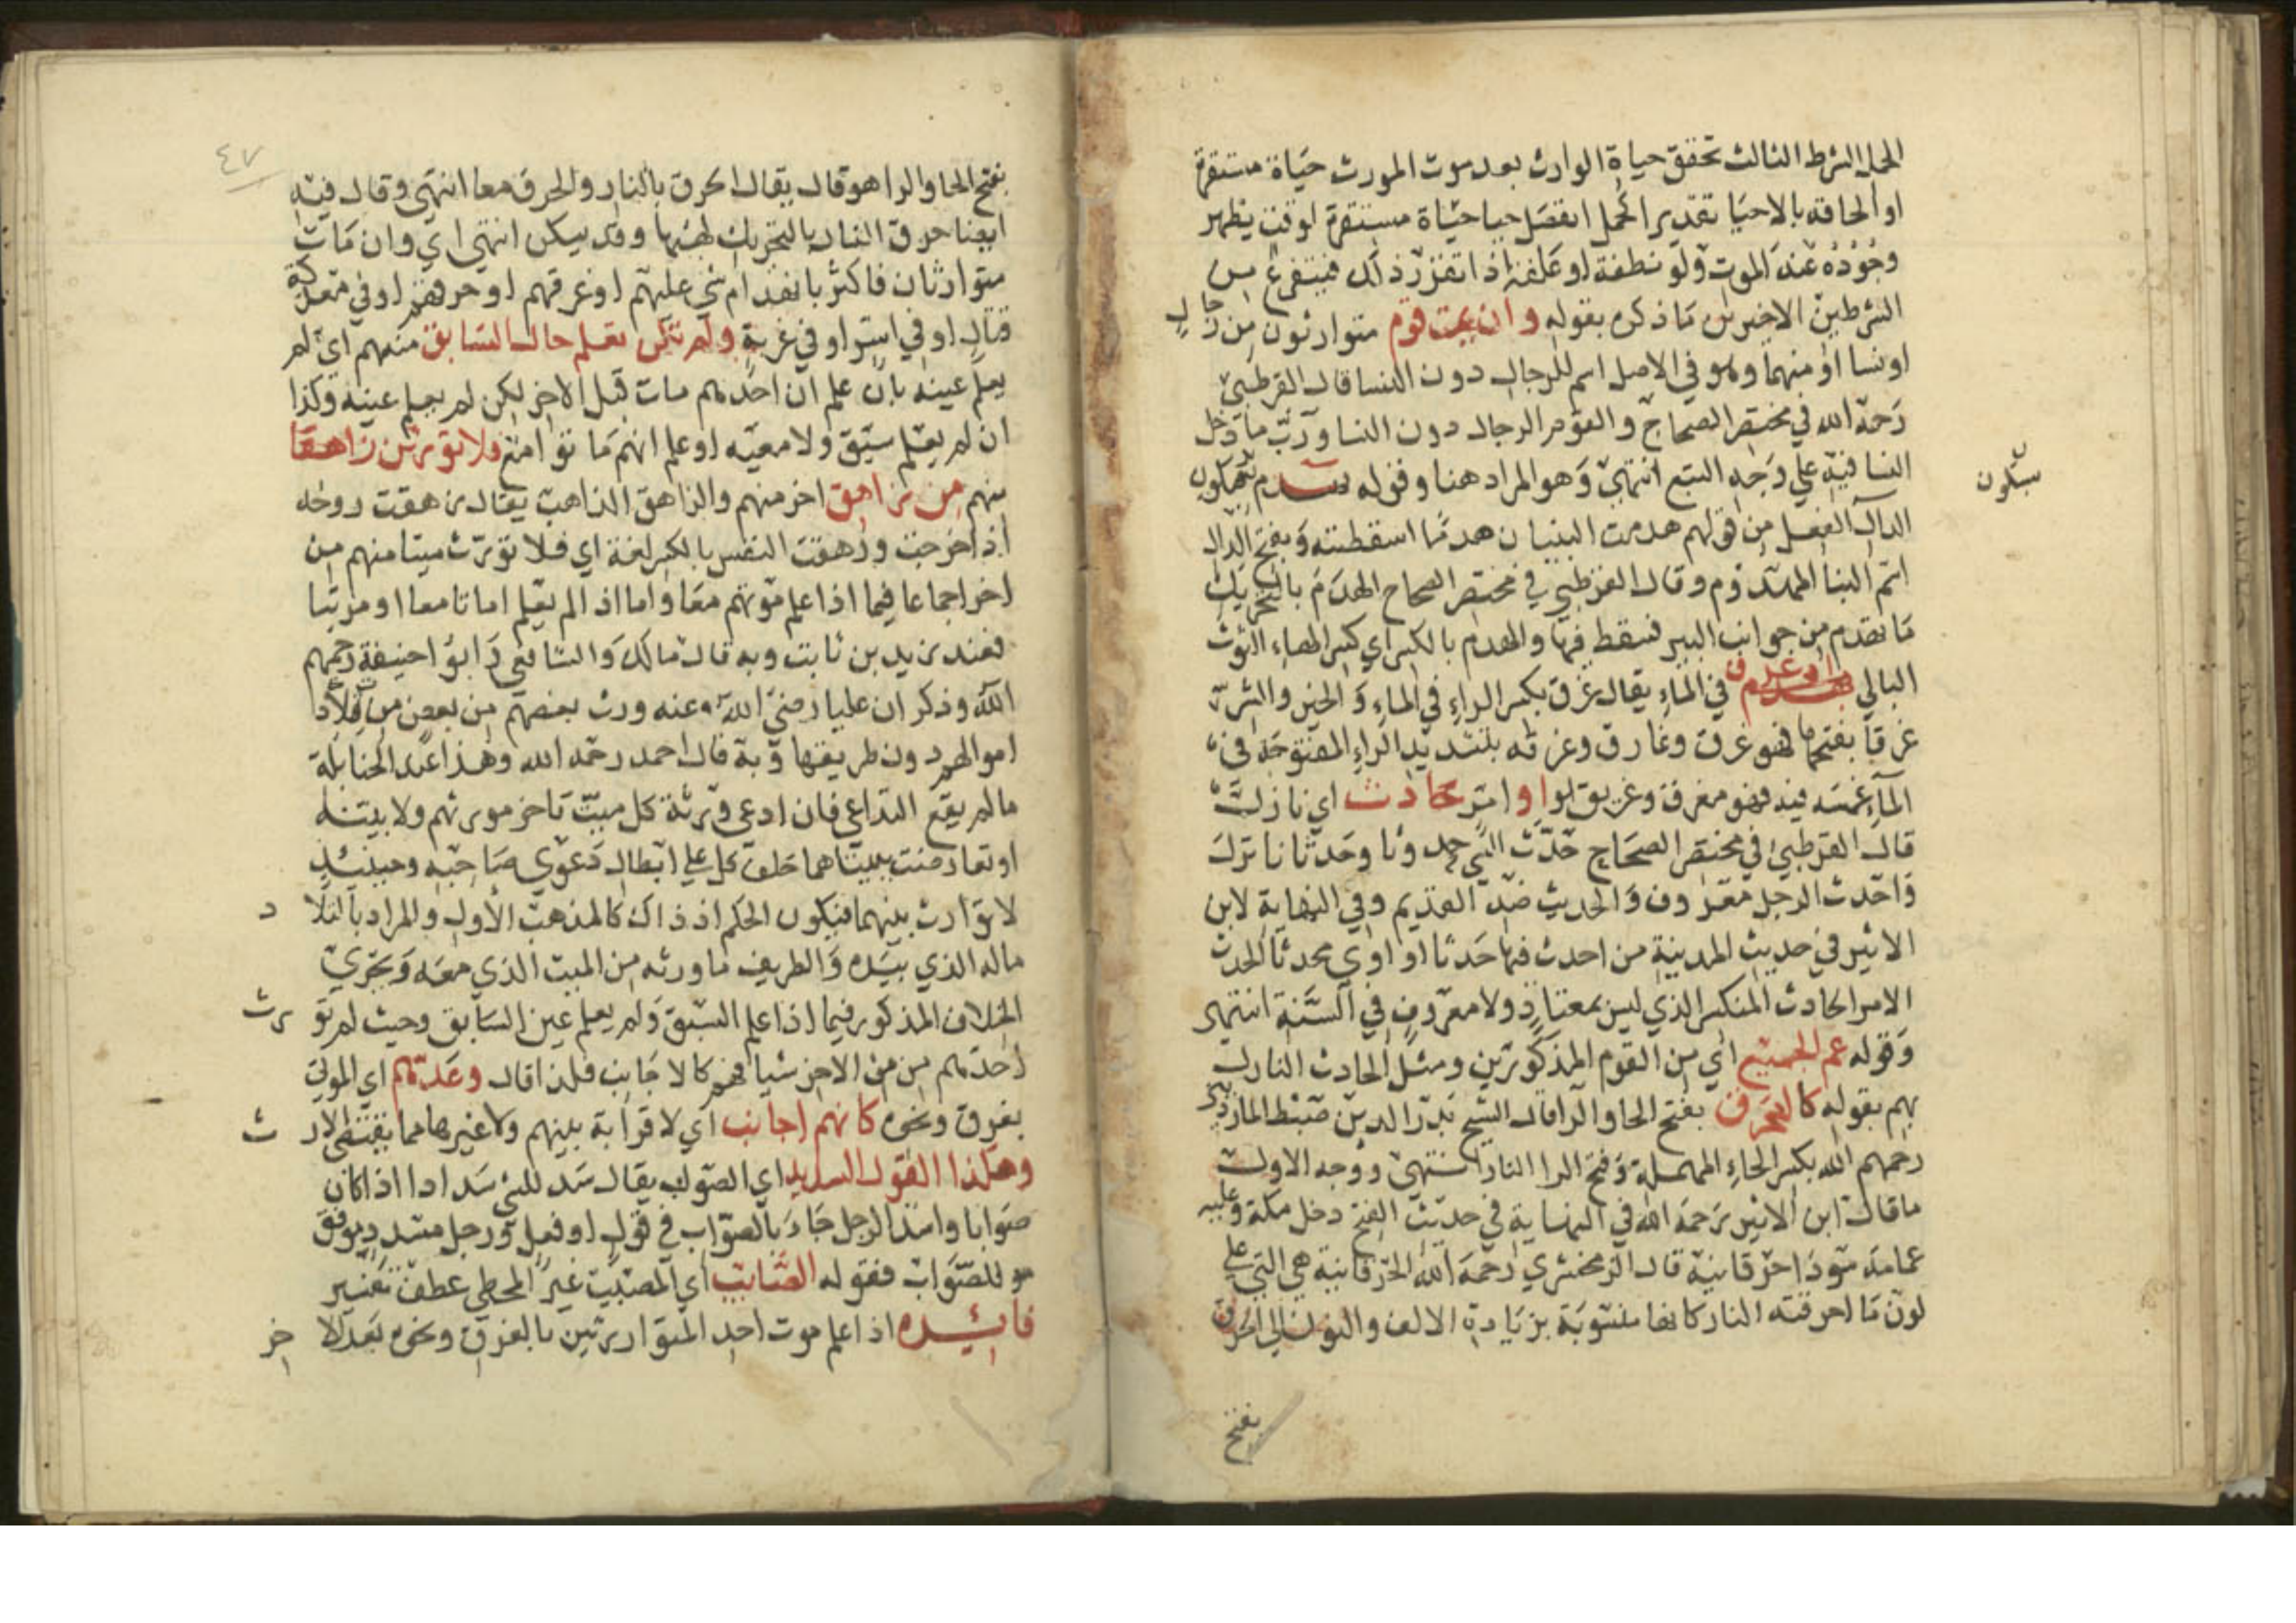 الحمل الشرط الثالث تحقق حياة الوارث بعد موت المورث حياة مستقرة
او الحاقه بالاحيا تقديرا كحمل انفصل حيا حياة مستقرة لوقت يظهر
وجوده عند الموت ولو نطفة او علقة اذا تقرر ذلك فيتفرع من
الشرطين الاخيرين ما ذكره بقوله وان يمت قوم متوارثون من رجال
او نسا او منهما وهو في الاصل اسم للرجال دون النسا قال القرطبي
رحمه الله في مختصر الصحاح والقوم الرجال دون النسا وربما دخل
النسا فيه على وجه التبع انتهى وهو المراد هنا وقوله بهدم بسكون
سكون
الدال الفعل من قولهم هدمت البنيان هدما اسقطته وبفتح الدال
اسم البنا المهدوم وقال القرطبي في مختصر الصحاح الهدم بالتحريك
ما تهدم من جوانب البير فسقط فيها والهدم بالكسر اي كسر الهاء الثوب
البالي او غرق في الماء يقال غرق بكسر الراء في الماء والخير والشر
غرقا بفتحها فهو غرق وغارق وغرقه بتشديد الراء المفتوحة في
الماء غمسه فيه فهو مغرق وغريق او امر حادث اي نازل
قال القرطبي في مختصر الصحاح حدث الشي حدوثا وحدثانا نزل
واحدث الرجل معروف والحديث ضد القديم وفي النهاية لابن
الاثير في حديث المدينة من احدث فيها حدثا او اوى محدثا الحدث
الامر الحادث المنكر الذي ليس بمعتاد ولا معروف في السنة انتهى
وقوله عم الجميع اي من القوم المذكورين ومثل الحادث النازل
بهم بقوله كالحرق بفتح الحا والرا قال الشيخ بدر الدين ضبط المارديني
رحمهم الله بكسر الحاء المهملة وفتح الرا النار انتهى ووجه الاول
ما قال ابن الاثير رحمه الله في النهاية في حديث الفتح دخل مكة وعليه
عمامة سودا حرقانية قال الزمخشري رحمه الله الحرقانية هي التي على
لون ما احرقته النار كانها منسوبة بزيادة الالف والنون الى الحرق
بفتح
٤٧
بفتح الحا والرا هو قال يقال الحرق بالنار والحرق معا انتهى وقال فيه
ايضا حرق النار بالتحريك لهبها وقد يسكن انتهى اي وان مات
متوارثان فاكثر بانهدام شي عليهم او غرقهم او حرقهم او في معركة
قتال او في اسر او في غربة ولم تكن تعلم حال السابق منهم اي لم
يعلم عينه بان علم ان احدهم مات قبل الاخر لكن لم يعلم عينه وكذا
ان لم يعلم سبق ولا معيه او علم انهم ماتوا معا فلا تورثن زاهقا
منهم من زاهق اخر منهم والزاهق الذاهب يقال زهقت روحه
اذا خرجت وزهقت النفس بالكسر لغة اي فلا تورث ميتا منهم من
اخر اجماعا فيما اذا علم موتهم معا واما اذا لم يعلم اماتا معا او مرتبا
فعند زيد بن ثابت وبه قال مالك والشافعي وابو حنيفة رحمهم
الله وذكر ان عليا رضي الله عنه ورث بعضهم من بعض من تلاد
اموالهم دون طريفها وبه قال احمد رحمه الله وهذا عند الحنابلة
ما لم يقع التداعي فان ادعى ورثة كل ميت تاخر مورثهم ولا بينة
او تعارضت بينتاهما حلف كل على ابطال دعوى صاحبه وحينئذ
لا توارث بينهما فيكون الحكم اذ ذاك كالمذهب الاول والمراد بالتلاد
ماله الذي بيده والطريف ما ورثه من الميت الذي معه ويجري
الخلاف المذكور فيما اذا علم السبق ولم يعلم عين السابق وحيث لم تورث
احدهم من من الاخر شيا فهم كالاجانب فلذا قال وعدهم اي الموتى
بغرق ونحوه كانهم اجانب اي لا قرابة بينهم ولا غيرها مما يقتضي الارث
وهكذا القول السديد اي الصواب يقال سد للشي سدادا اذا كان
صوابا واسد الرجل جاء بالصواب في قول او فعل ورجل مسدد موفق
للصواب فقوله الصائب اي المصيب غير المخطي عطف تفسير
فائيده اذا علم موت احد المتوارثين بالغرق ونحوه بعد الاخر